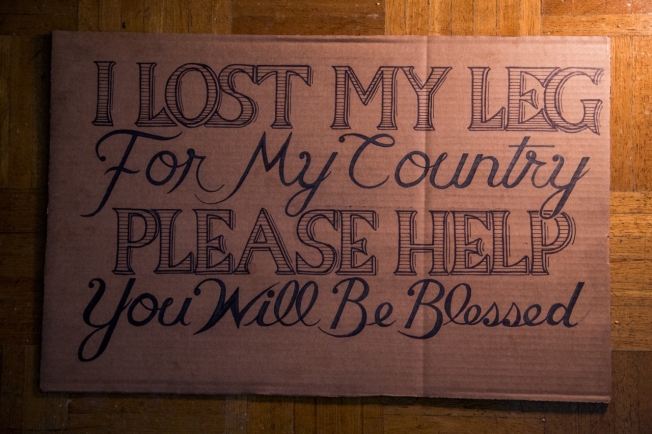 I LOST MY LEG
For My Country
PLEASE HELP
You Will Be Blessed